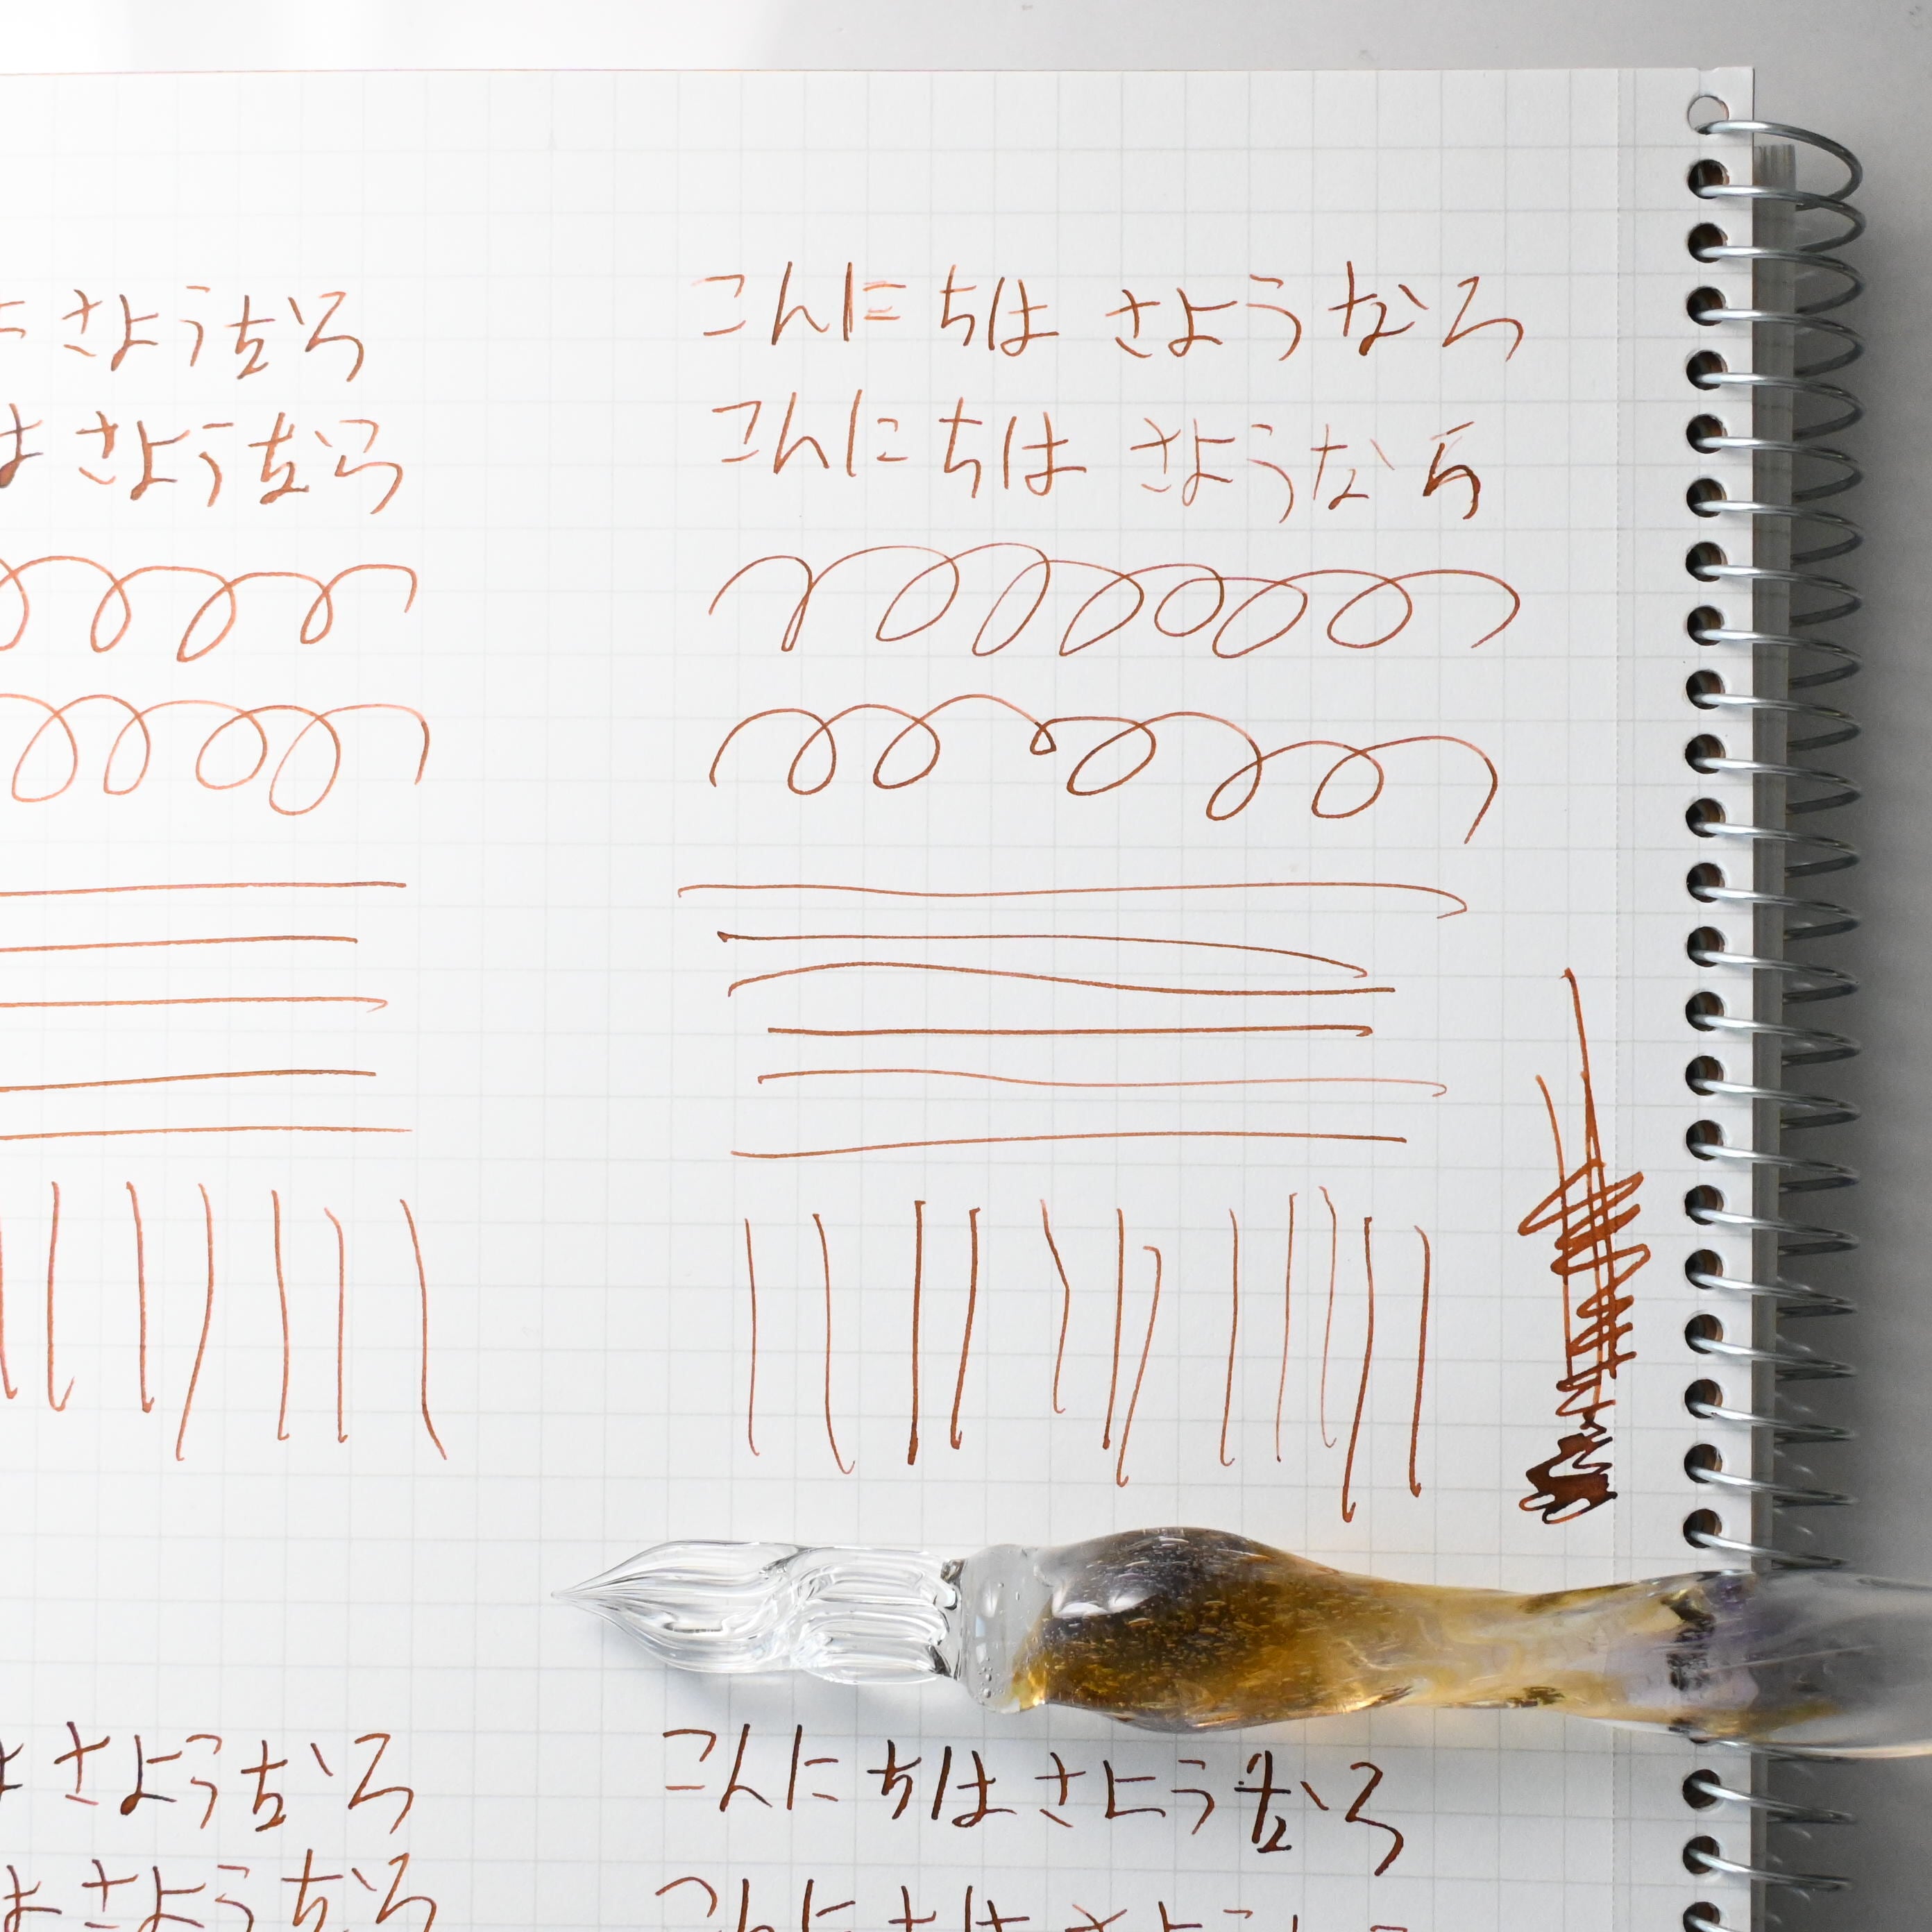 さようなら
こんにちは さようなら
は さようなら
こんにちは さようなら
は さようなら
こんにちは さようなら
は さようなら
こんにちは さようなら